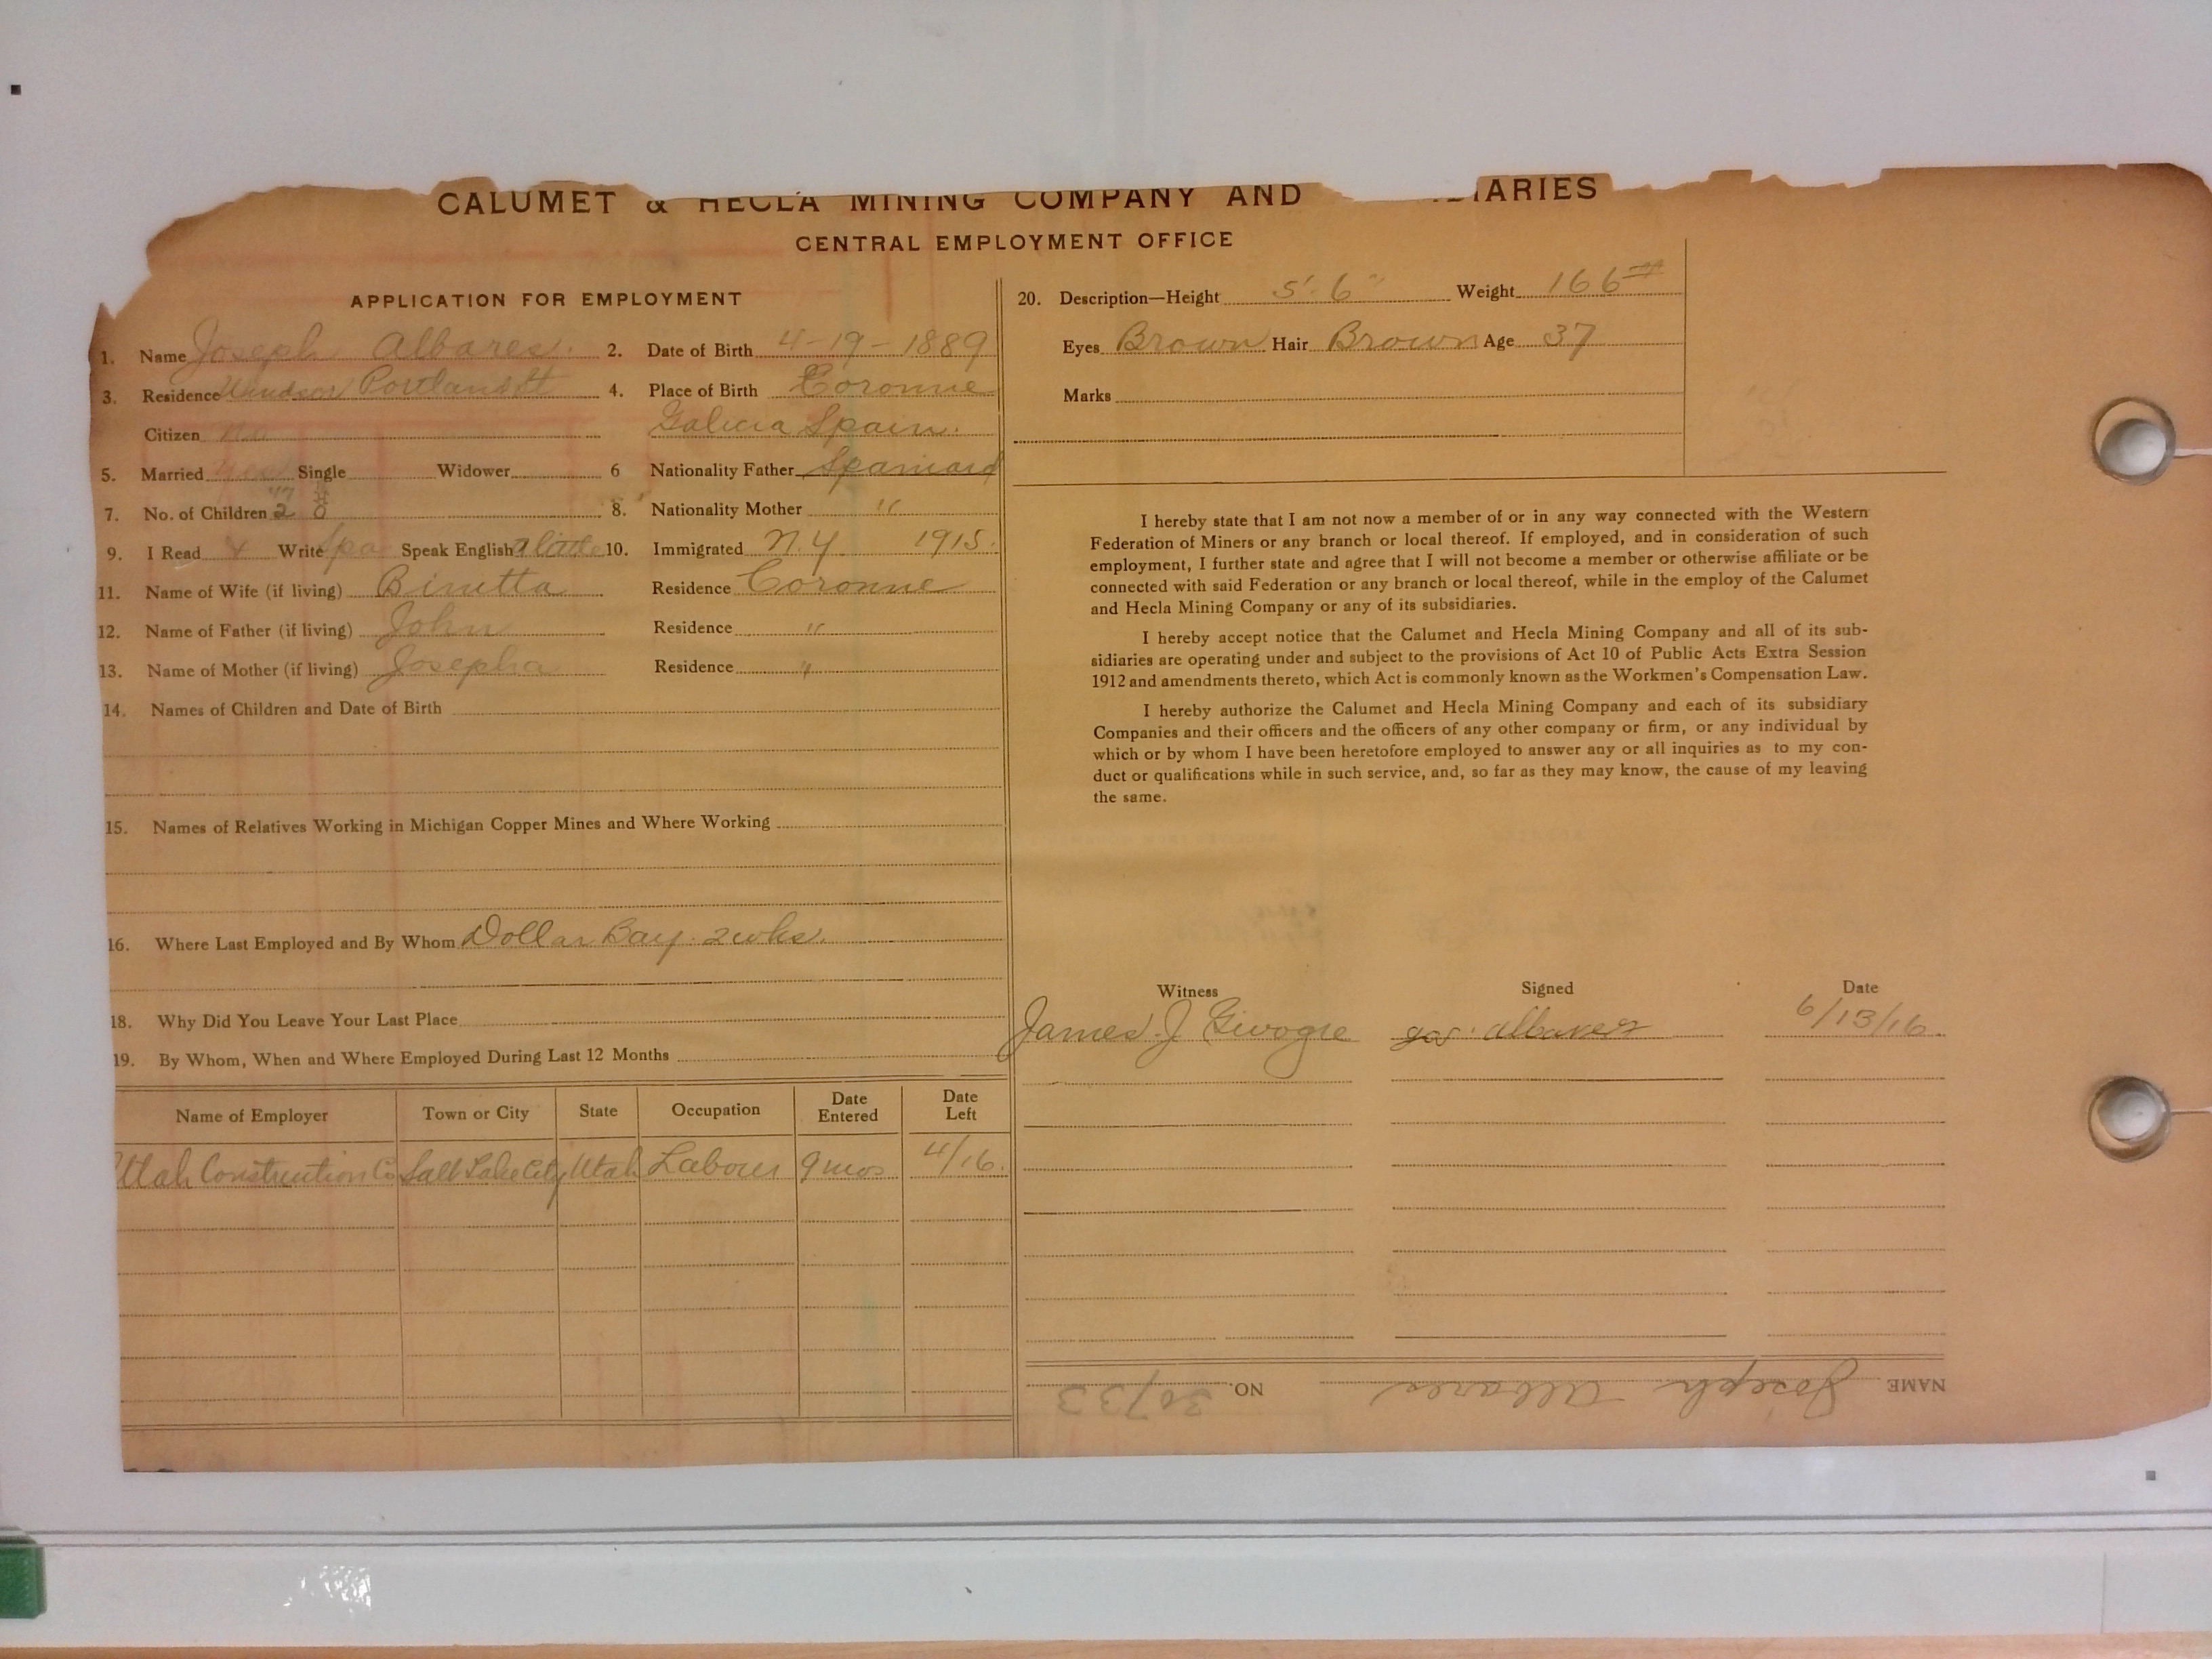 CALUMET & HECLA MINING COMPANY AND IARIES
CENTRAL EMPLOYMENT OFFICE
APPLICATION FOR EMPLOYMENT
1. Name Joseph Albares.
2. Date of Birth 4-19-1889
3. Residence Windsor Portland St
4. Place of Birth Coronne
Galicia Spain.
Citizen No
5. Married Yes Single Widower
6 Nationality Father Spaniard
7. No. of Children 2
8. Nationality Mother "
9. I Read & Write Spa Speak English a little
10. Immigrated N.Y. 1915.
11. Name of Wife (if living) Binetta
Residence Coronne
12. Name of Father (if living) John
Residence "
13. Name of Mother (if living) Josepha
Residence "
14. Names of Children and Date of Birth
15. Names of Relatives Working in Michigan Copper Mines and Where Working
16. Where Last Employed and By Whom Dollar Bay. 2 wks.
18. Why Did You Leave Your Last Place
19. By Whom, When and Where Employed During Last 12 Months
Name of Employer Town or City State Occupation Date Entered Date Left
Utah Construction Co Salt Lake City Utah Labour 9 mos 4/16.
20. Description—Height 5' 6" Weight 166
Eyes Brown Hair Brown Age 37
Marks
I hereby state that I am not now a member of or in any way connected with the Western
Federation of Miners or any branch or local thereof. If employed, and in consideration of such
employment, I further state and agree that I will not become a member or otherwise affiliate or be
connected with said Federation or any branch or local thereof, while in the employ of the Calumet
and Hecla Mining Company or any of its subsidiaries.
I hereby accept notice that the Calumet and Hecla Mining Company and all of its sub-
sidiaries are operating under and subject to the provisions of Act 10 of Public Acts Extra Session
1912 and amendments thereto, which Act is commonly known as the Workmen's Compensation Law.
I hereby authorize the Calumet and Hecla Mining Company and each of its subsidiary
Companies and their officers and the officers of any other company or firm, or any individual by
which or by whom I have been heretofore employed to answer any or all inquiries as to my con-
duct or qualifications while in such service, and, so far as they may know, the cause of my leaving
the same.
Witness Signed Date
James J albares 6/13/16.
NAME Joseph Albares NO. 30733